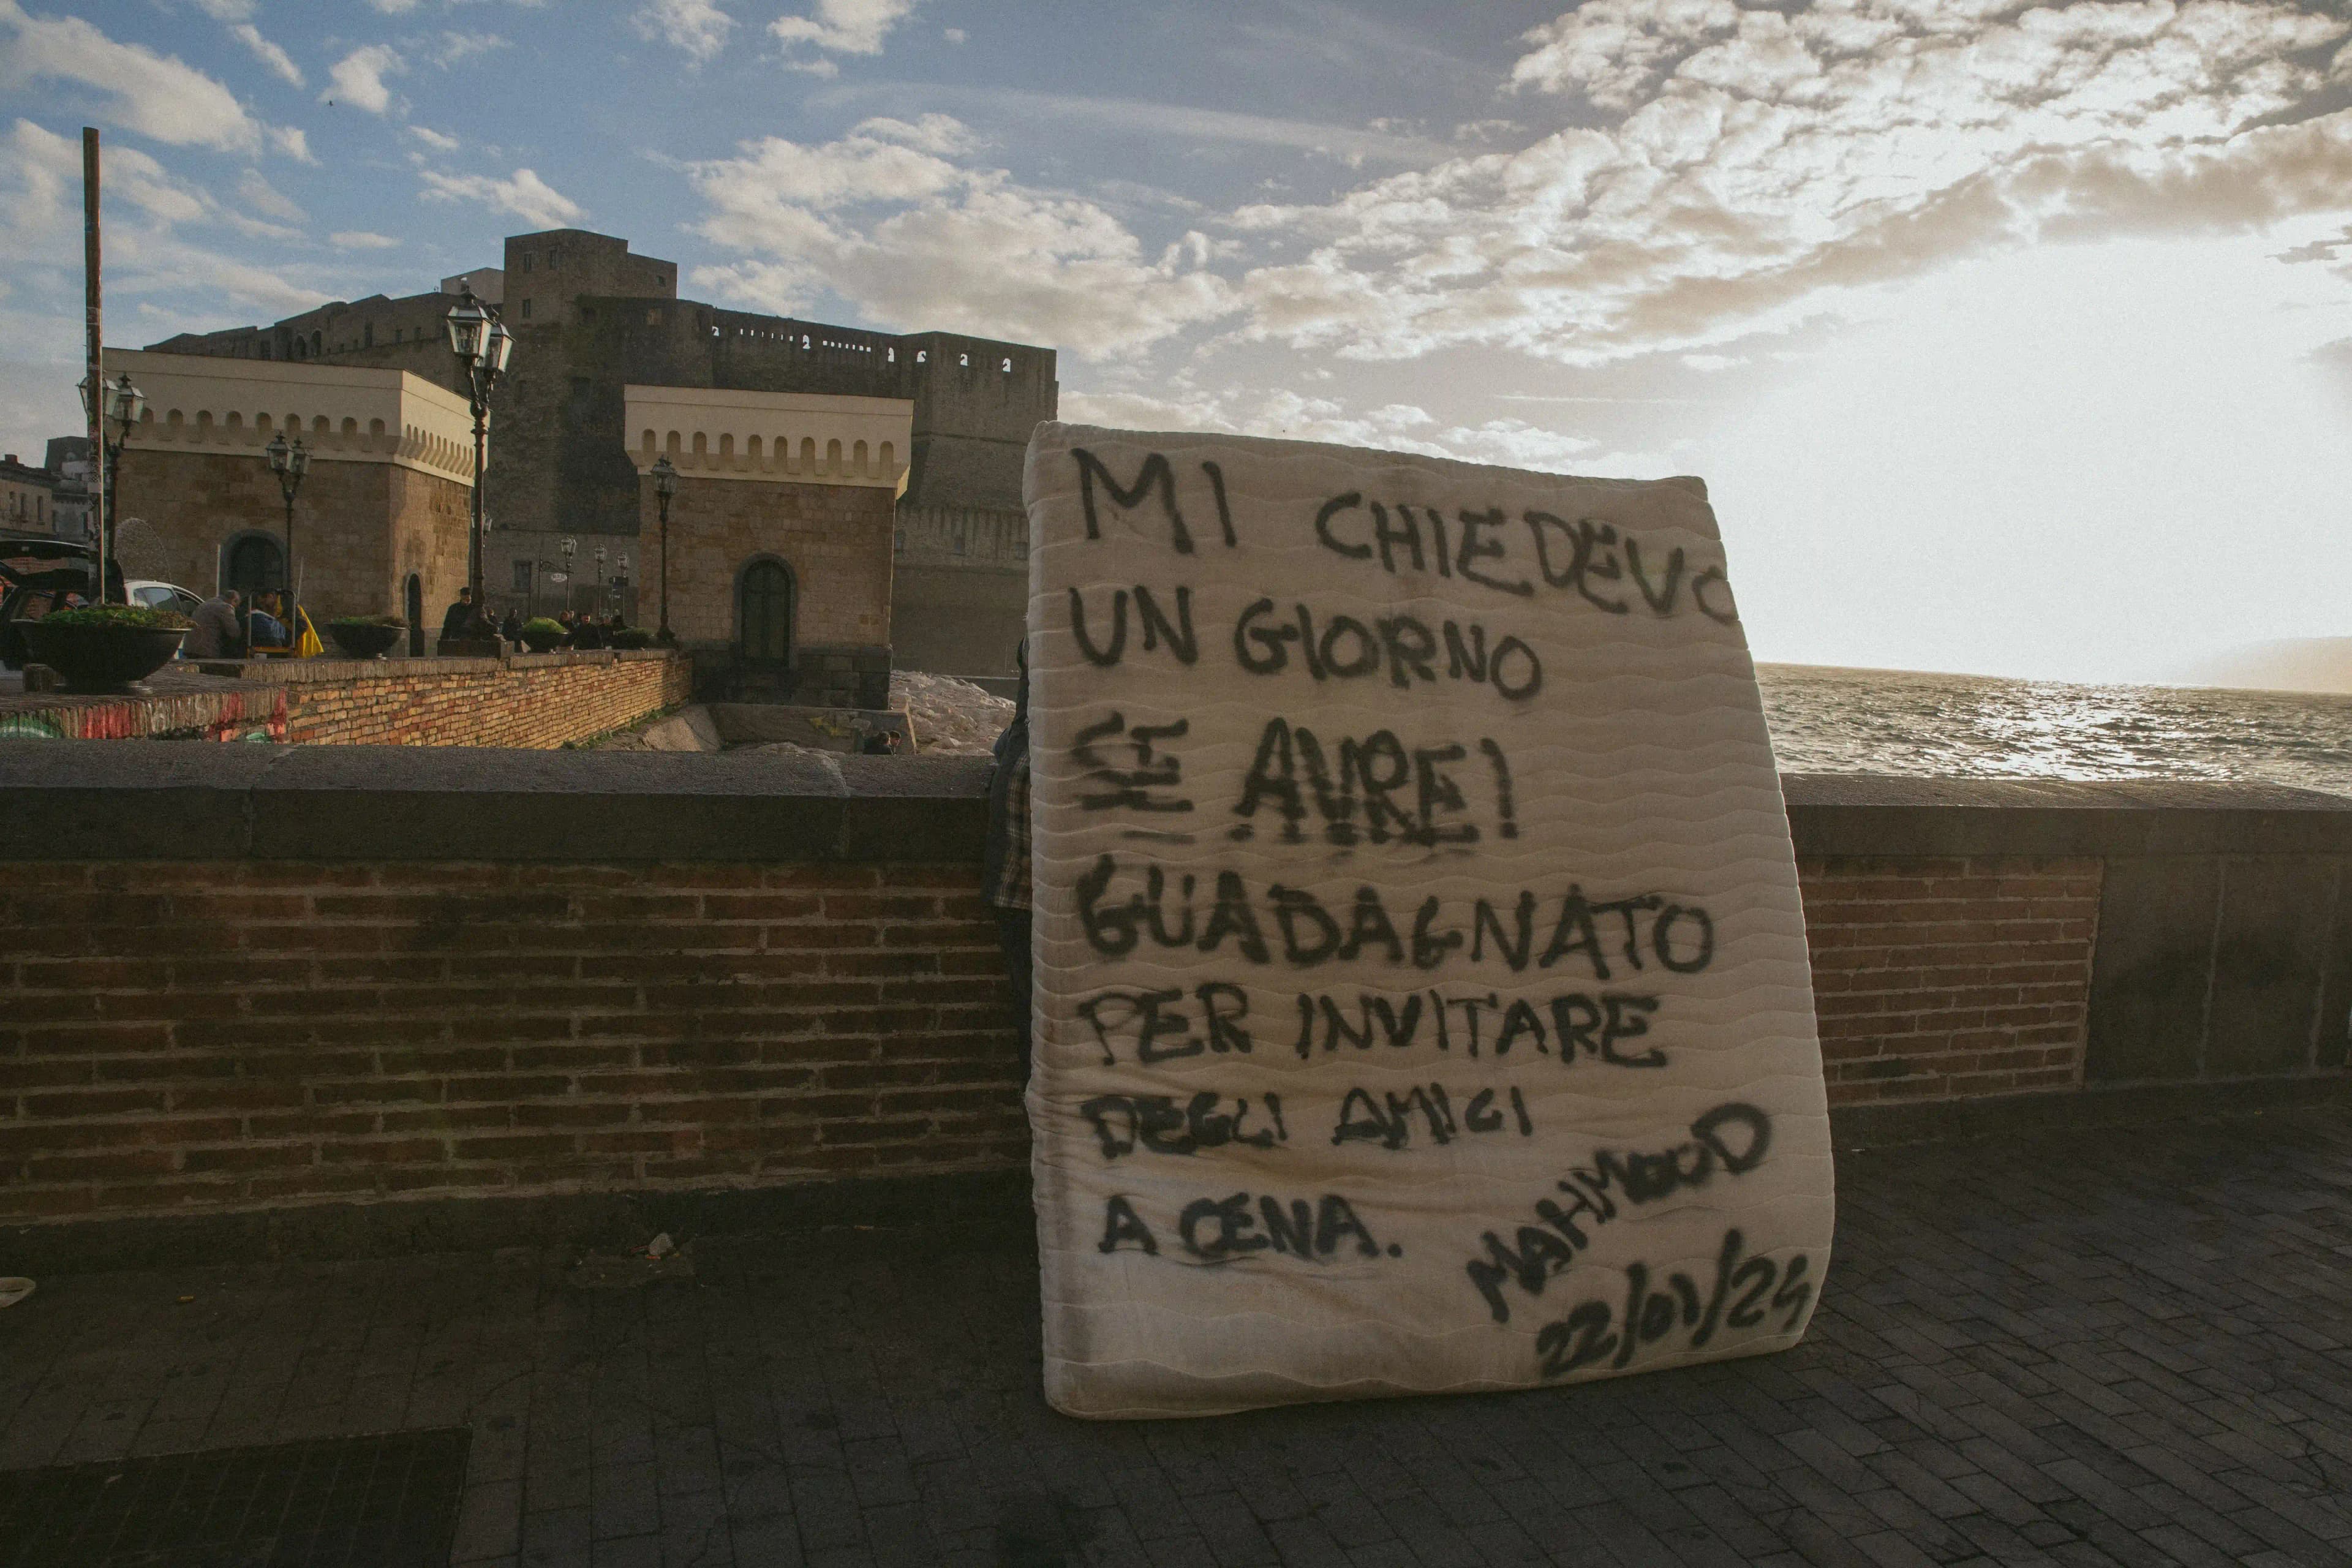 MI CHIEDEVO
UN GIORNO
SE AVREI
GUADAGNATO
PER INVITARE
DEGLI AMICI
A CENA.
MAHMOOD
22/01/24